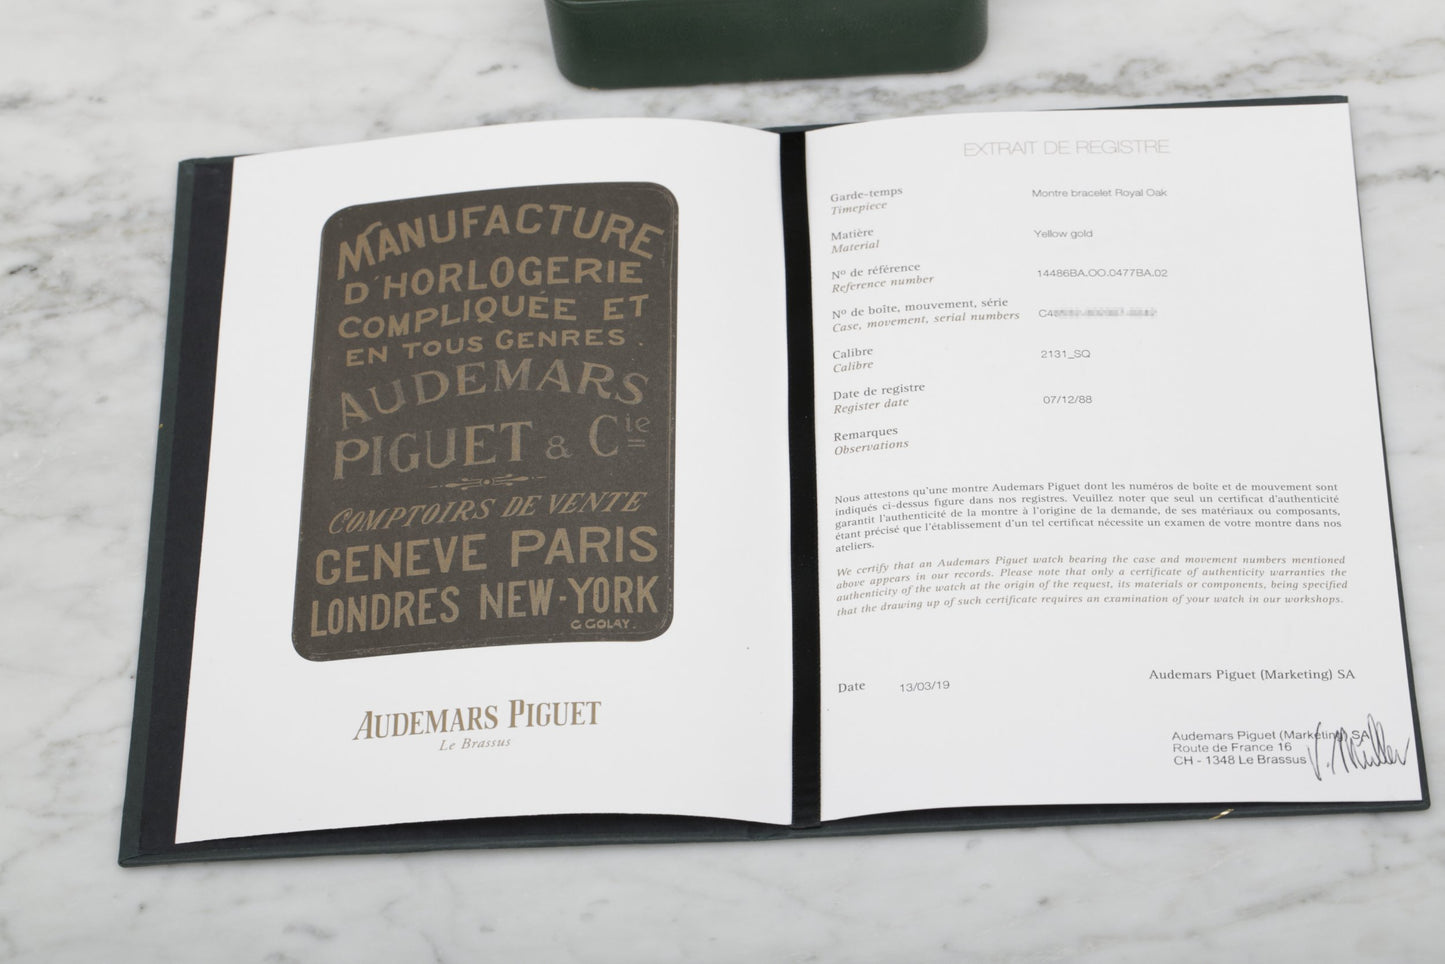 MANUFACTURE
D'HORLOGERIE
COMPLIQUÉE ET
EN TOUS GENRES.
AUDEMARS
PIGUET & Cie
COMPTOIRS DE VENTE
GENEVE PARIS
LONDRES NEW-YORK
G GOLAY.
AUDEMARS PIGUET
Le Brassus
EXTRAIT DE REGISTRE
Garde-temps Montre bracelet Royal Oak
Timepiece
Matière Yellow gold
Material
Nº de référence 14486BA.OO.0477BA.02
Reference number
Nº de boîte, mouvement, série
Case, movement, serial numbers
Calibre 2131_SQ
Calibre
Date de registre 07/12/88
Register date
Remarques
Observations
Nous attestons qu'une montre Audemars Piguet dont les numéros de boîte et de mouvement sont
indiqués ci-dessus figure dans nos registres. Veuillez noter que seul un certificat d'authenticité
garantit l'authenticité de la montre à l'origine de la demande, de ses matériaux ou composants,
étant précisé que l'établissement d'un tel certificat nécessite un examen de votre montre dans nos
ateliers.
We certify that an Audemars Piguet watch bearing the case and movement numbers mentioned
above appears in our records. Please note that only a certificate of authenticity warranties the
authenticity of the watch at the origin of the request, its materials or components, being specified
that the drawing up of such certificate requires an examination of your watch in our workshops.
Audemars Piguet (Marketing) SA
Date 13/03/19
Audemars Piguet (Marketing) SA
Route de France 16
CH - 1348 Le Brassus